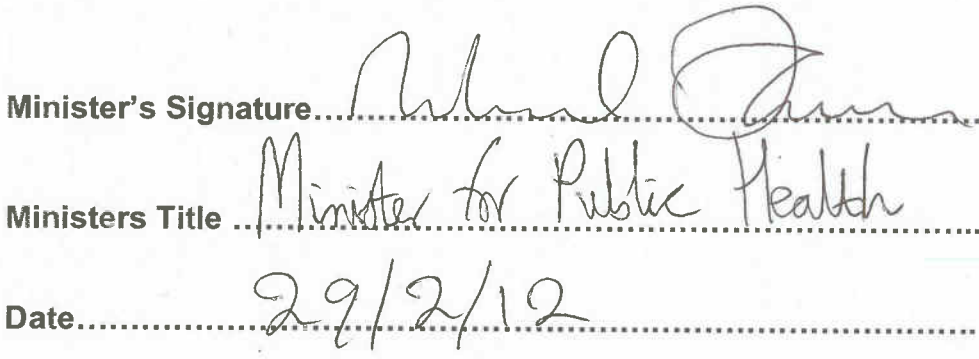 Minister's Signature....................
Ministers Title ....Minister for Public Health....
Date....29/2/12....